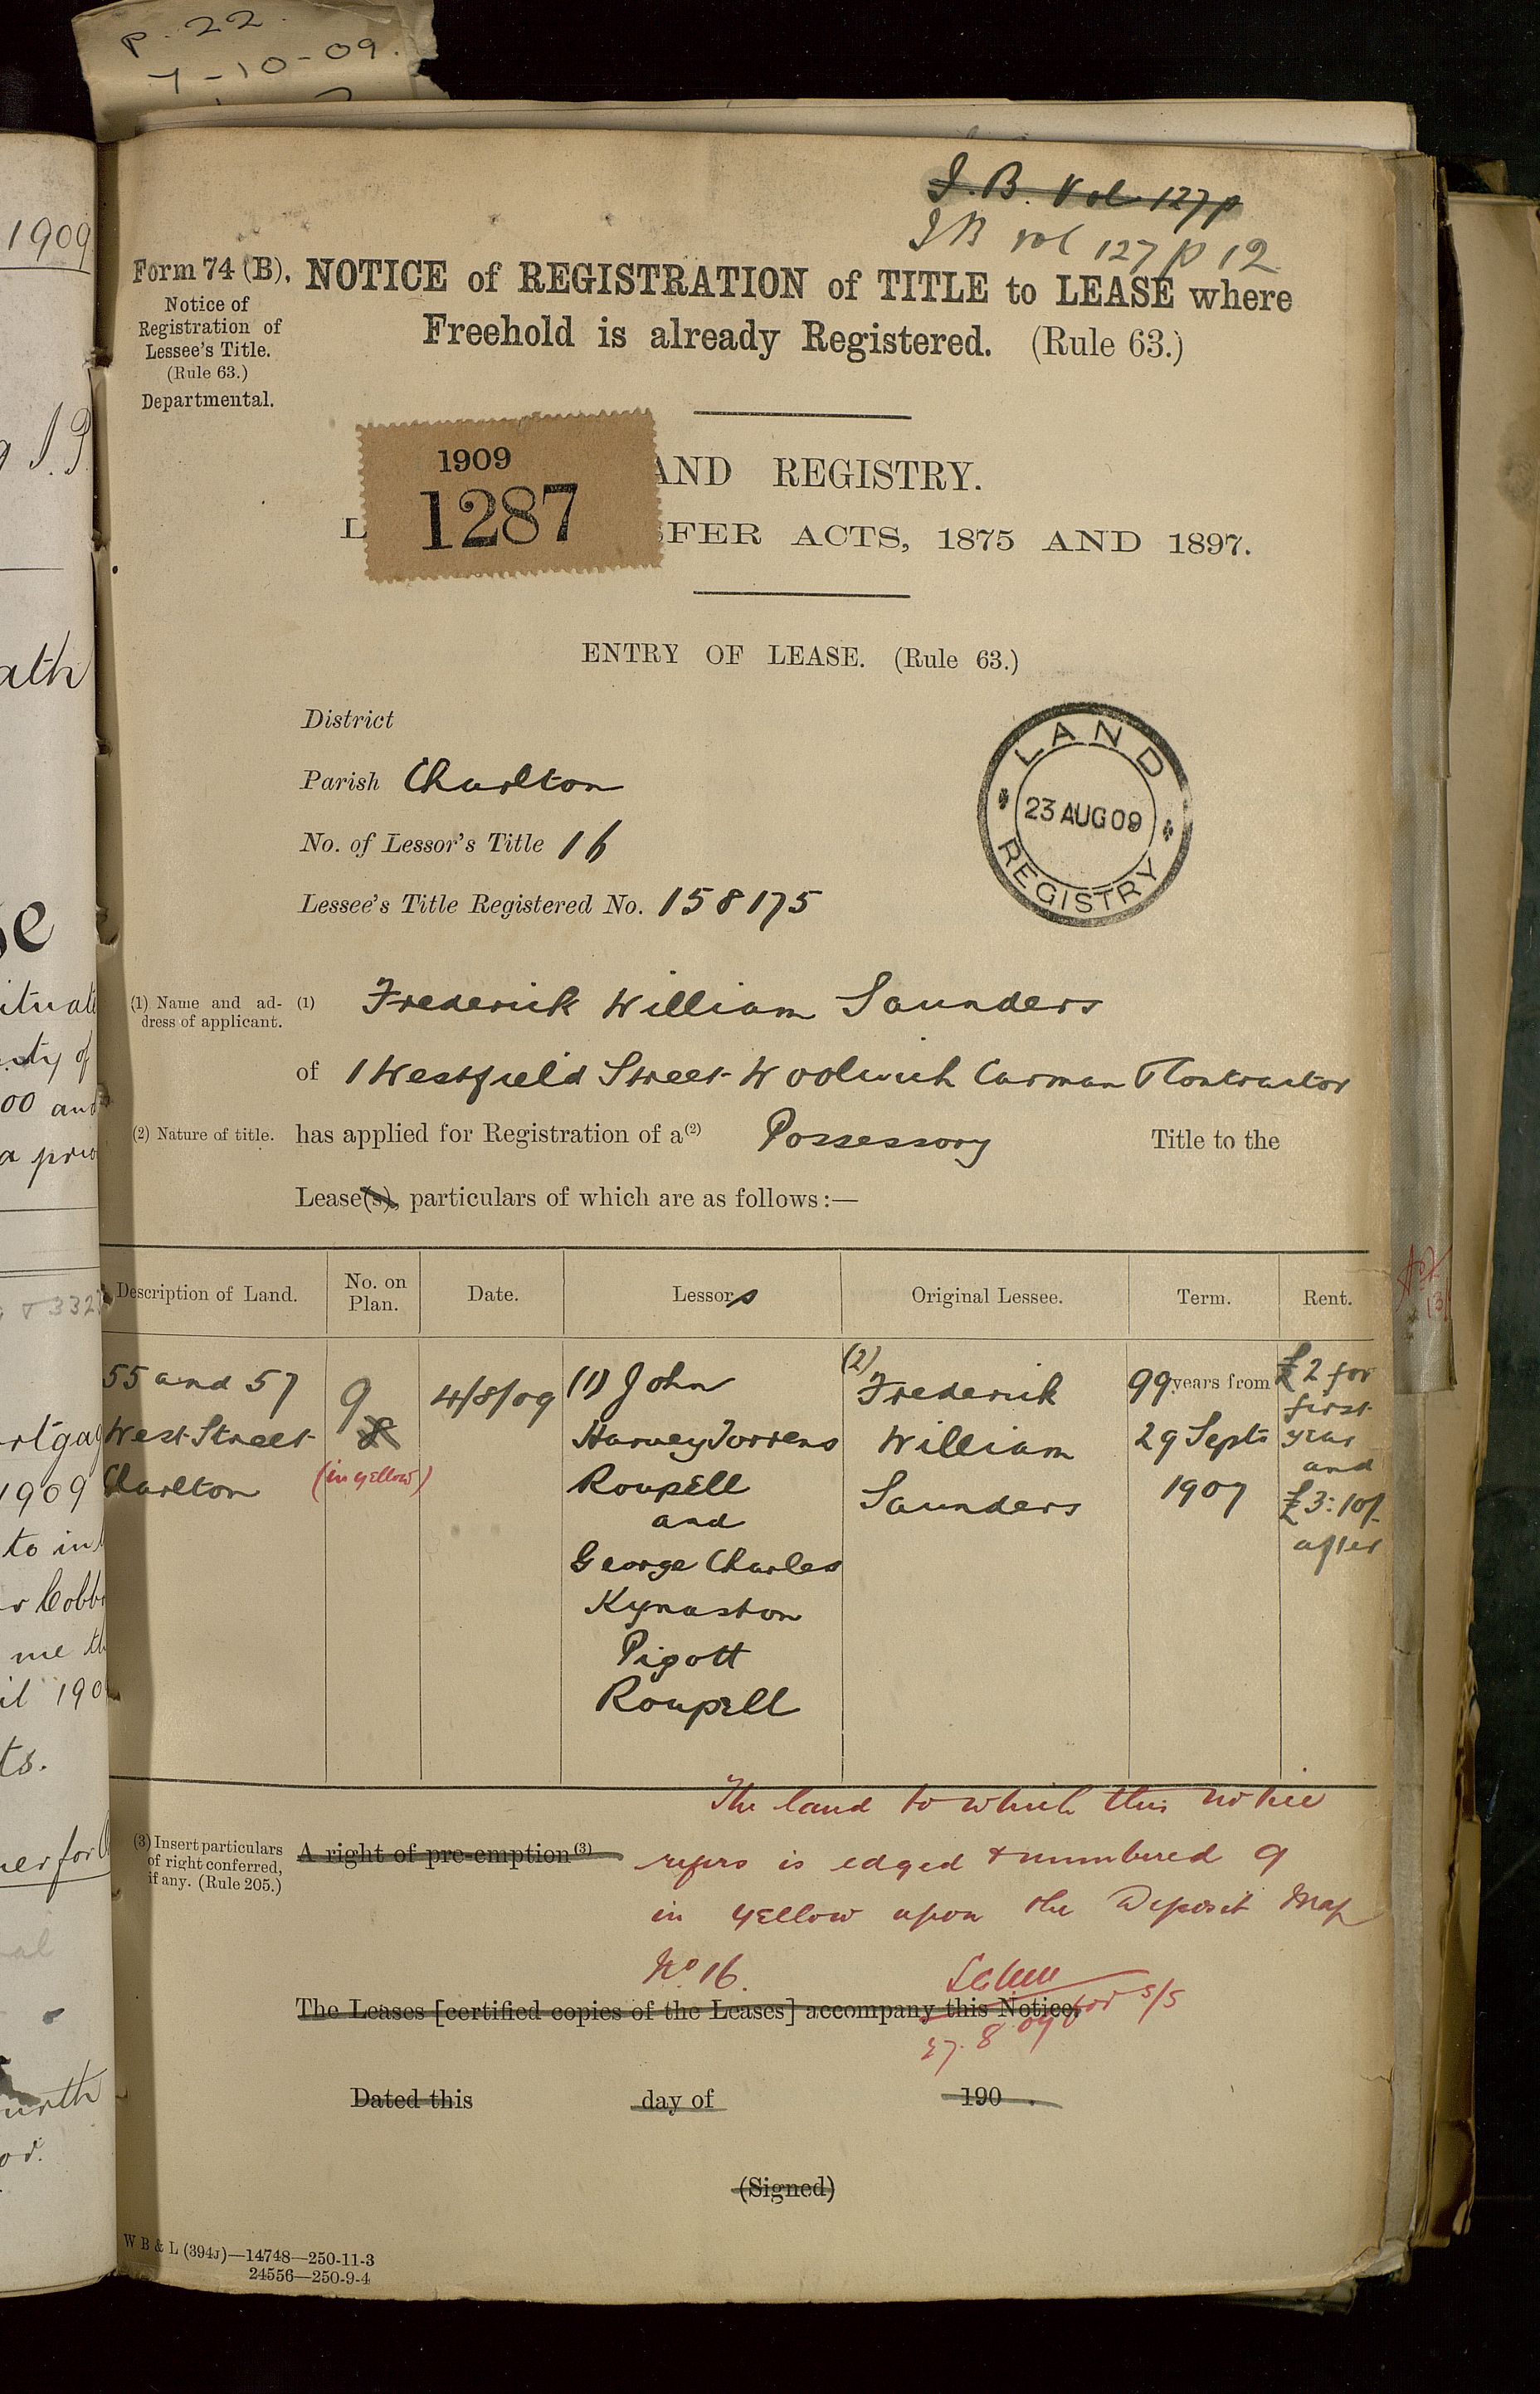 p. 22.
7-10-09.
J.B. Vol 127 p
J B vol 127 p 12
Form 74 (B).
Notice of
Registration of
Lessee's Title.
(Rule 63.)
Departmental.
NOTICE of REGISTRATION of TITLE to LEASE where
Freehold is already Registered. (Rule 63.)
1909
1287
AND REGISTRY.
L SFER ACTS, 1875 AND 1897.
ENTRY OF LEASE. (Rule 63.)
District
Parish Charlton
No. of Lessor's Title 16
Lessee's Title Registered No. 158175
LAND
23 AUG 09
REGISTRY
(1) Name and ad-
dress of applicant.
(1) Frederick William Saunders
of 1 Westfield Street Woolwich Carman & Contractor
(2) Nature of title.
has applied for Registration of a(2) Possessory Title to the
Lease(s), particulars of which are as follows:—
Description of Land.
No. on
Plan.
Date.
Lessors
Original Lessee.
Term.
Rent.
55 and 57
West Street
Charlton
9
8
(in yellow)
4/8/09
(1) John
Harvey Torrens
Roupell
and
George Charles
Kynaston
Pigott
Roupell
(2)
Frederick
William
Saunders
99 years from
29 Septr
1907
£2 for
first
year
and
£3:10/-
after
The land to which this notice
refers is edged & numbered 9
in yellow upon the Deposit Map
No 16.
(3) Insert particulars
of right conferred,
if any. (Rule 205.)
A right of pre-emption(3)
The Leases [certified copies of the Leases] accompany this Notice.
for s/s
27. 8 09
Dated this day of 190 .
(Signed)
W B & L (394J)—14748—250-11-3
24556—250-9-4
1909
ath
se
ituat
nty of
00 and
a prio
1909
to in
r Cobb
me th
il 190
ts.
ner for
urth